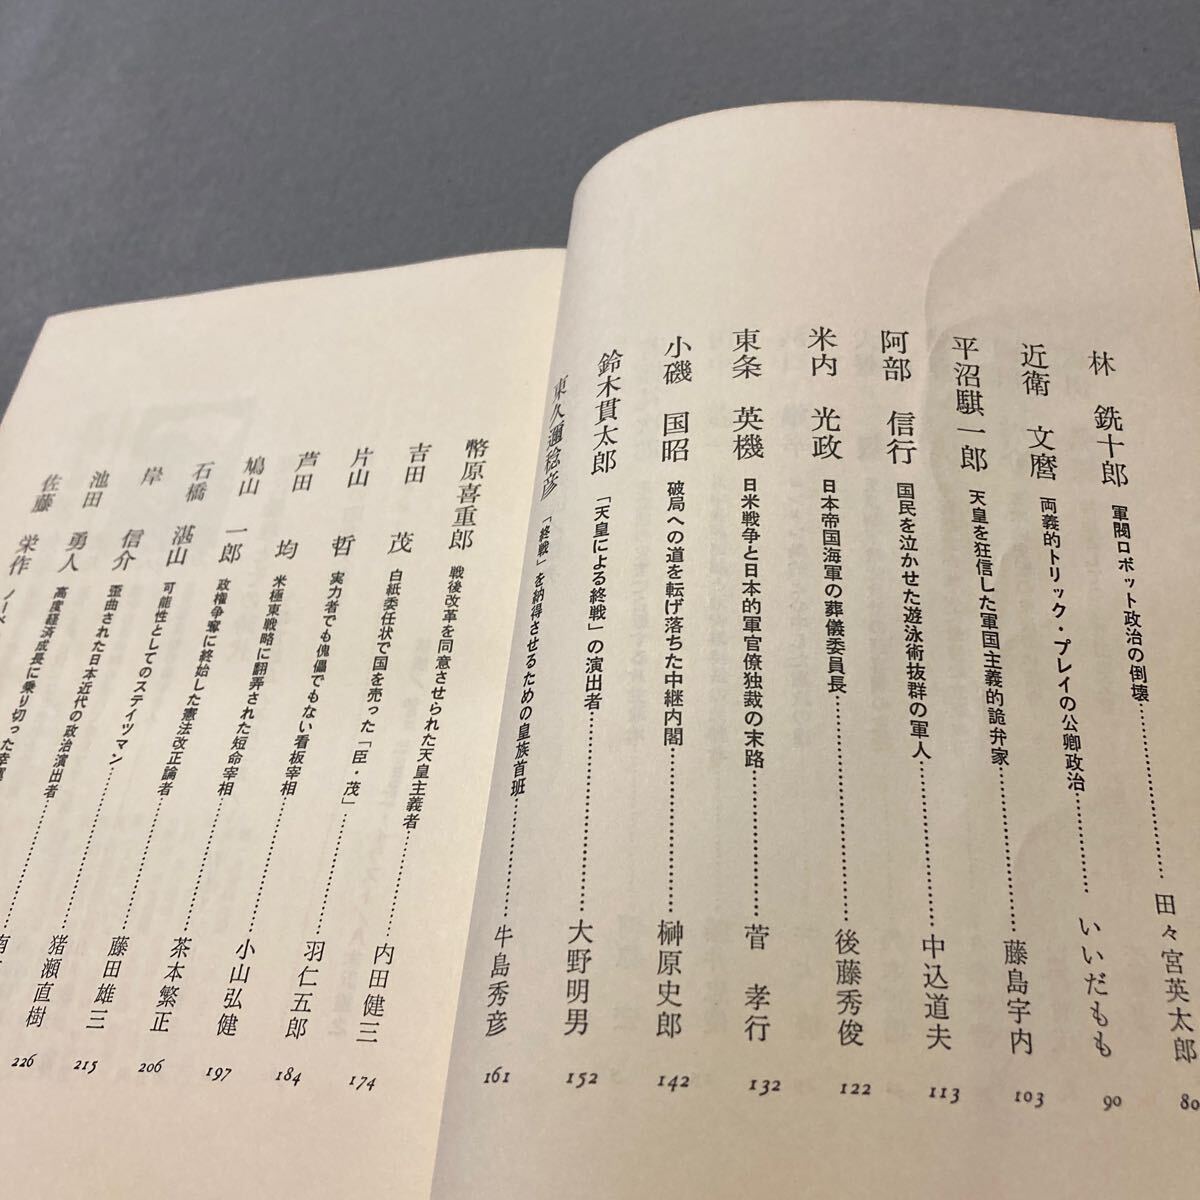 林 銑十郎 軍閥ロボット政治の倒壊………田々宮英太郎 80
近衛 文麿 両義的トリック・プレイの公卿政治………いいだもも 90
平沼騏一郎 天皇を狂信した軍国主義的詭弁家………藤島宇内 103
阿部 信行 国民を泣かせた遊泳術抜群の軍人………中込道夫 113
米内 光政 日本帝国海軍の葬儀委員長………後藤秀俊 122
東条 英機 日米戦争と日本的軍官僚独裁の末路………菅 孝行 132
小磯 国昭 破局への道を転げ落ちた中継内閣………榊原史郎 142
鈴木貫太郎 「天皇による終戦」の演出者………大野明男 152
東久邇稔彦 「終戦」を納得させるための皇族首班………牛島秀彦 161
幣原喜重郎 戦後改革を同意させられた天皇主義者………内田健三 174
吉田 茂 白紙委任状で国を売った「臣・茂」………羽仁五郎 184
片山 哲 実力者でも傀儡でもない看板宰相………小山弘健 197
芦田 均 米極東戦略に翻弄された短命宰相………茶本繁正 206
鳩山 一郎 政権争奪に終始した憲法改正論者………藤田雄三 215
石橋 湛山 可能性としてのステイツマン………猪瀬直樹 226
岸 信介 歪曲された日本近代の政治演出者………
池田 勇人 高度経済成長に乗り切った幸運
佐藤 栄作 ノーベ